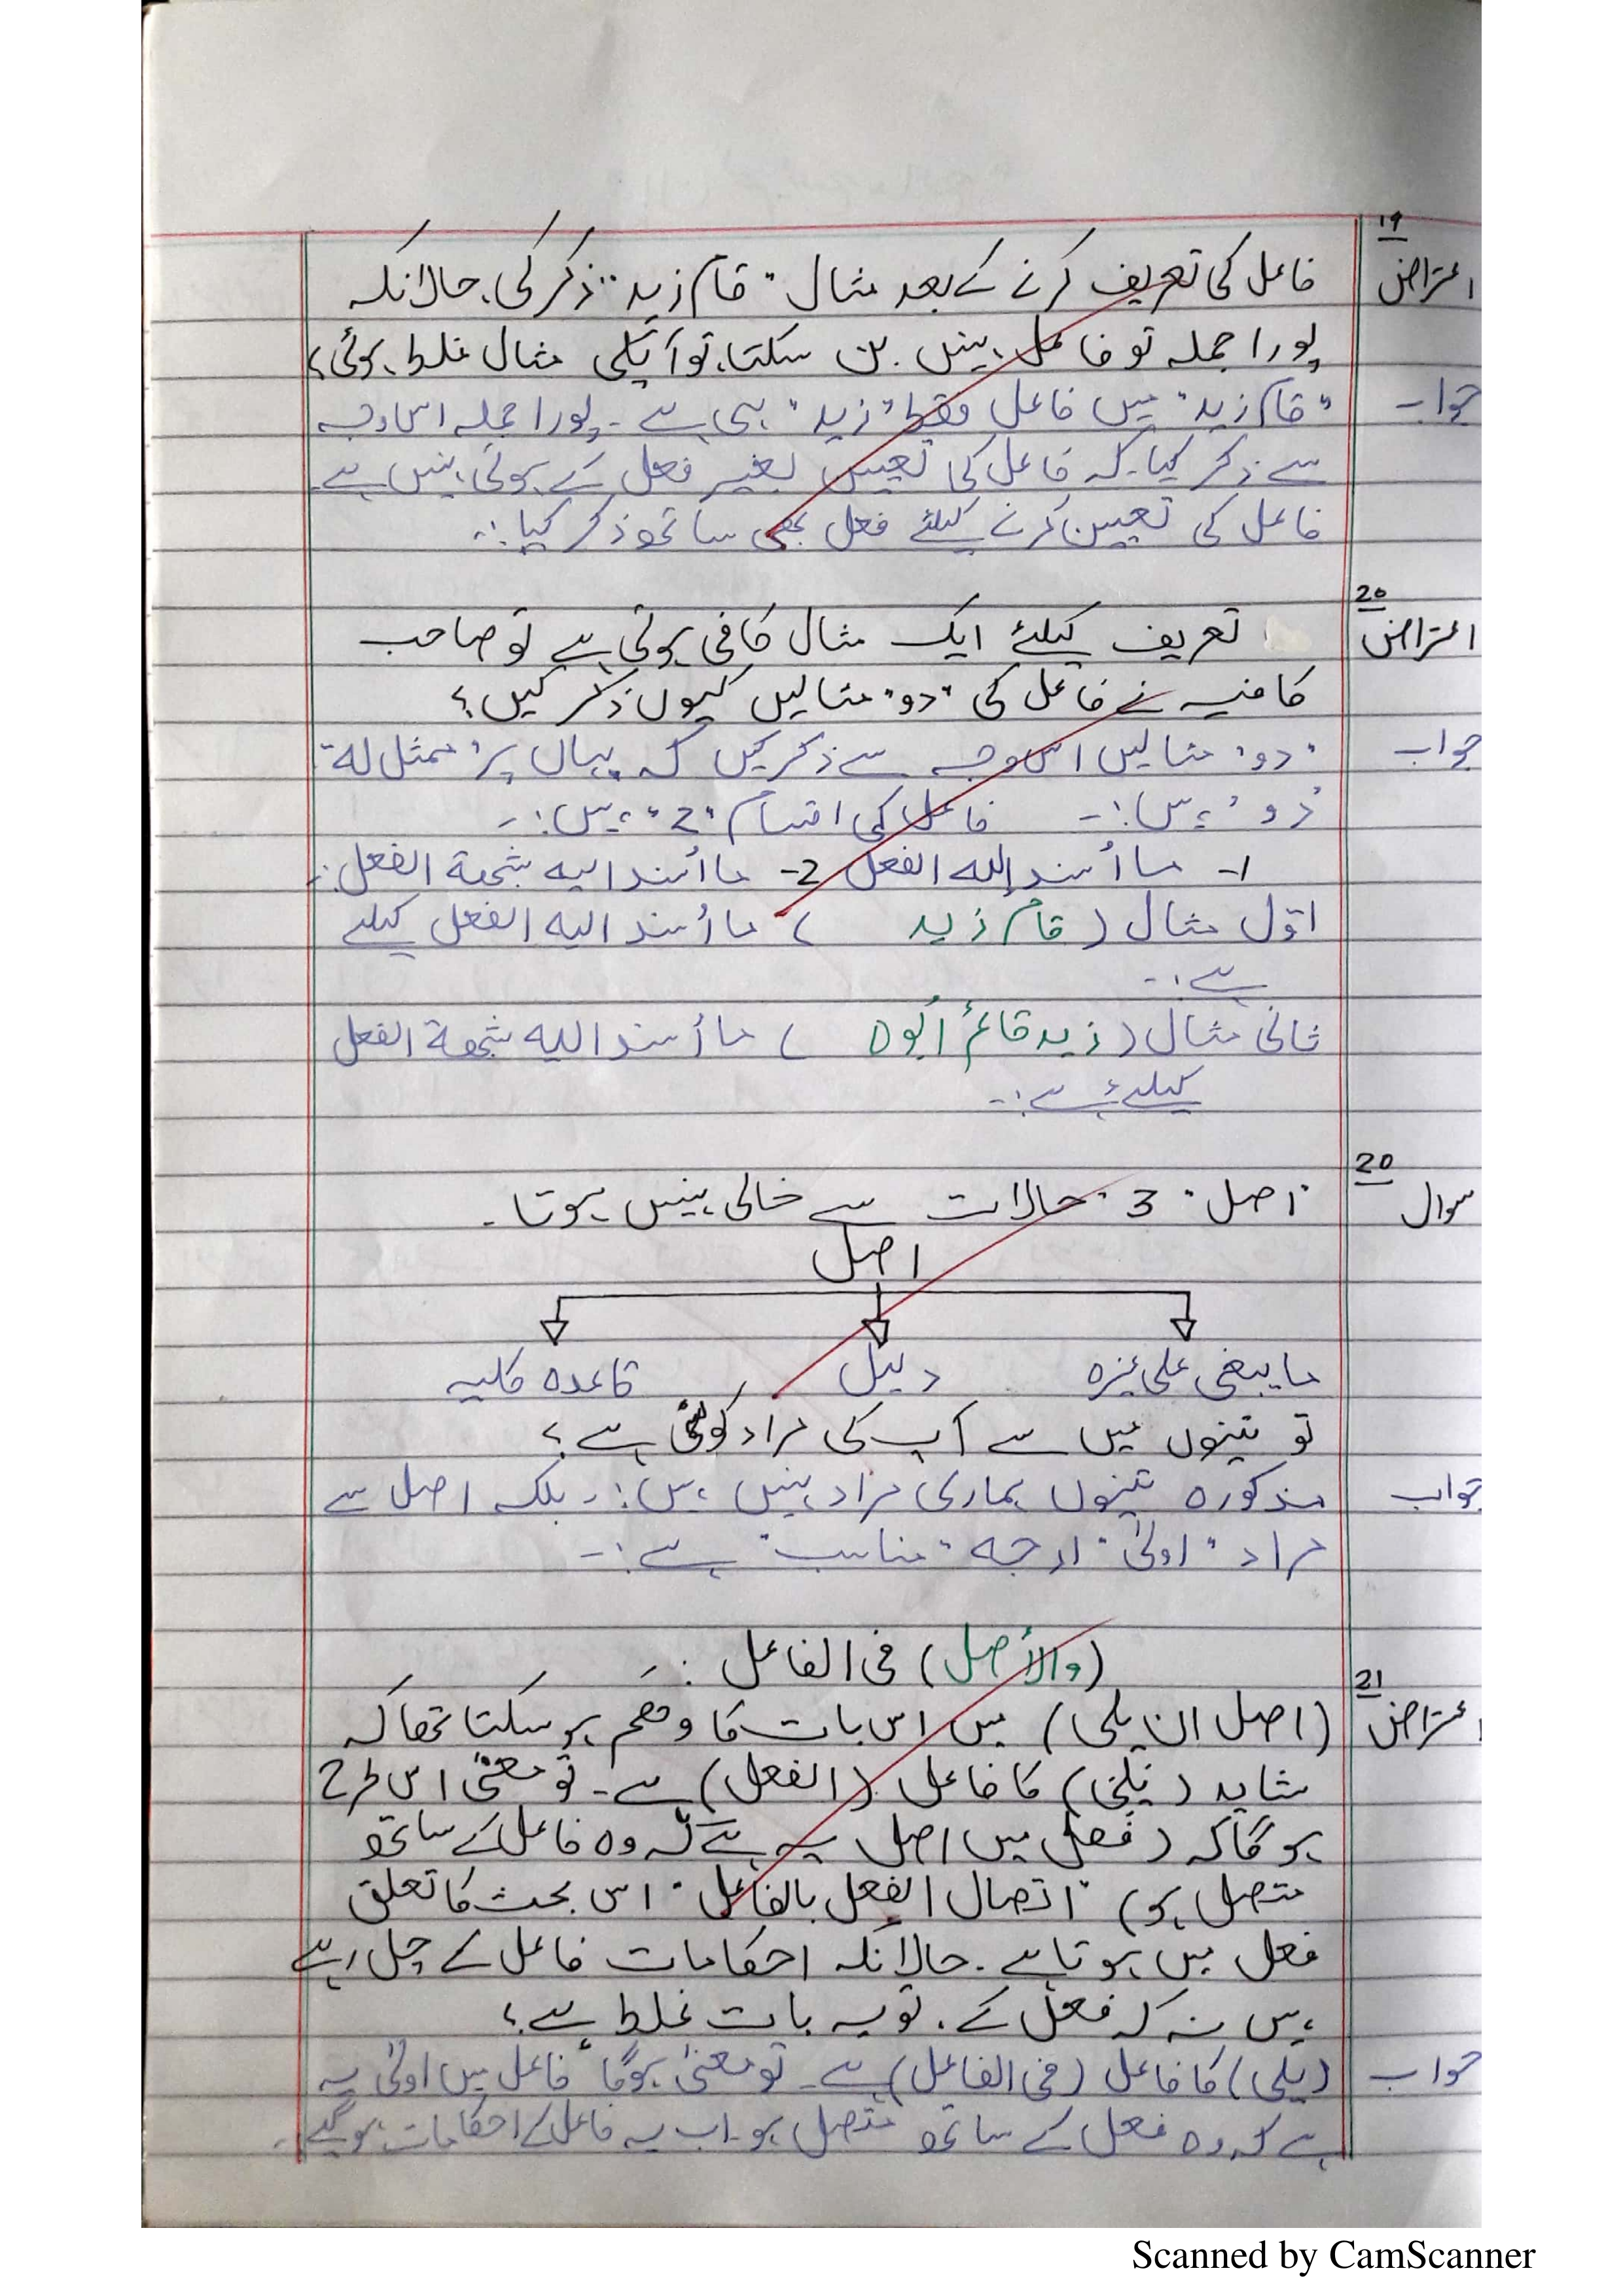 19
اعتراض فاعل کی تعریف کرنے کے بعد مثال "قام زید" ذکر کی، حالانکہ
پورا جملہ تو فاعل نہیں بن سکتا، تو آپکی مثال غلط ہوئی؟
جواب "قام زید" میں فاعل فقط "زید" ہی ہے۔ پورا جملہ اس وجہ
سے ذکر کیا۔ کہ فاعل کی تعیین بغیر فعل کے ہوتی نہیں ہے
فاعل کی تعیین کرنے کیلئے فعل بھی ساتھ ذکر کیا:۔
20
اعتراض تعریف کیلئے ایک مثال کافی ہوتی ہے تو صاحب
کافیہ نے فاعل کی "دو" مثالیں کیوں ذکر کیں؟
جواب "دو" مثالیں اس وجہ سے ذکر کیں کہ یہاں پر "ممثل لہ"
"دو" ہیں:۔ فاعل کی اقسام "2" ہیں:۔
1- ما أسند إليه الفعل 2- ما أسند اليه شبهة الفعل:۔
اوّل مثال (قام زید) ما أسند اليه الفعل کیلئے
ہے:۔
ثانی مثال (زید قائمٌ أبوہ) ما أسند اليه شبهة الفعل
کیلئے ہے:۔
20
سوال "اصل" 3 "حالات سے خالی نہیں ہوتا۔
اصل
ما یبغی علی غیرہ دلیل قاعدہ کلیہ
تو تینوں میں سے آپ کی مراد کونسی ہے؟
جواب مذکورہ تینوں ہماری مراد نہیں ہیں:۔ بلکہ اصل سے
مراد "اولیٰ" "مناسب" ہے:۔
(والأصل) فی الفاعل:۔
21
اعتراض (اصل ان یلی) میں اس بات کا وھم ہو سکتا تھا کہ
شاید (یلی) کا فاعل (الفعل) ہے۔ تو معنیٰ اس طرح
ہوگا کہ (فعل میں اصل یہ ہے کہ وہ فاعل کے ساتھ
متصل ہو) "اتصال الفعل بالفاعل" اس بحث کا تعلق
فعل میں ہوتا ہے۔ حالانکہ احکامات فاعل کے چل رہے
ہیں نہ کہ فعل کے، تو یہ بات غلط ہے؟
جواب (یلی) کا فاعل (فی الفاعل) ہے۔ تو معنیٰ ہوگا "فاعل میں اولیٰ یہ
ہے کہ وہ فعل کے ساتھ متصل ہو۔ اب یہ فاعل کے احکامات ہوگئے۔
Scanned by CamScanner